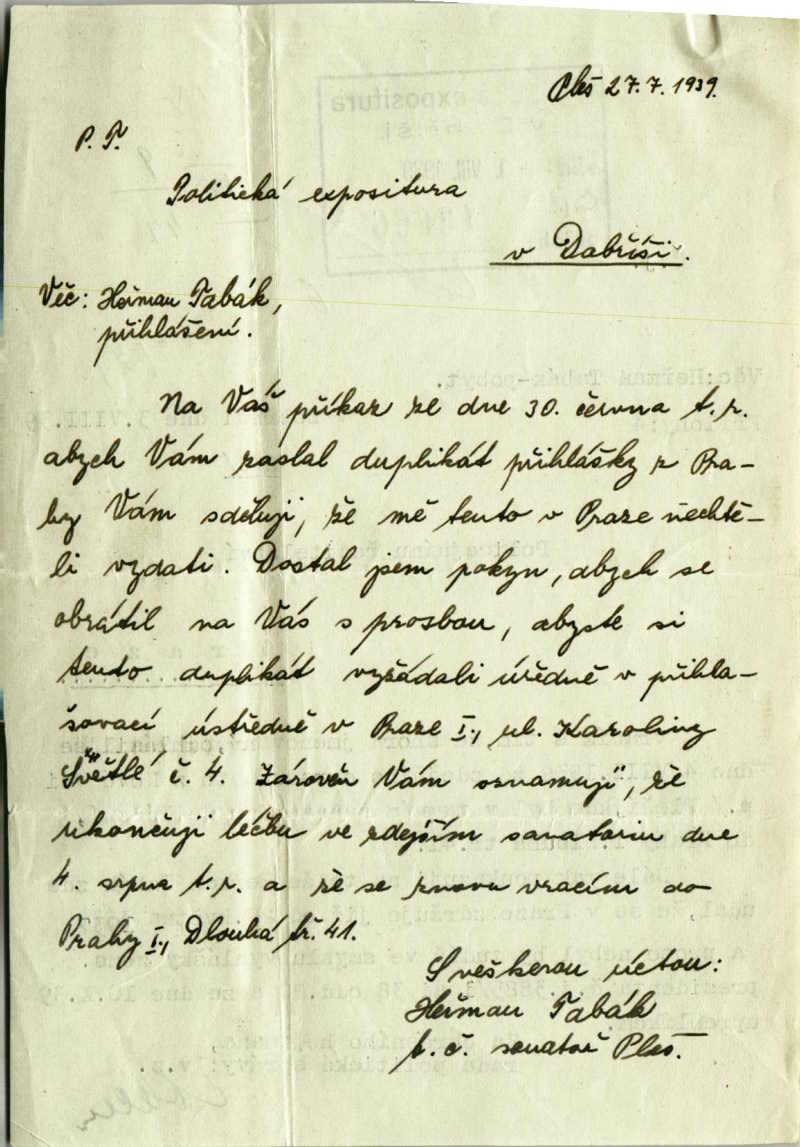 Pleš 27.7.1939.
P. T.
Politická expositura
v Dobříši.
Věc: Heřman Tabák,
přihlášení.
Na Váš příkaz ze dne 30. června t.r.
abych Vám zaslal duplikát přihlášky z Pra-
hy Vám sděluji, že mě tento v Praze nechtě-
li vzdati. Dostal jsem pokyn, abych se
obrátil na Vás s prosbou, abyste si
tento duplikát vyžádali úředně v přihla-
šovací ústředně v Praze I., ul. Karoliny
Světlé č. 4. Zároveň Vám oznamuji, že
ukončuji léčbu ve zdejším sanatoriu dne
4. srpna t.r. a že se znovu vracím do
Prahy I., Dlouhá tř. 41.
S veškerou úctou:
Heřman Tabák
t. č. sanatoř Pleš.